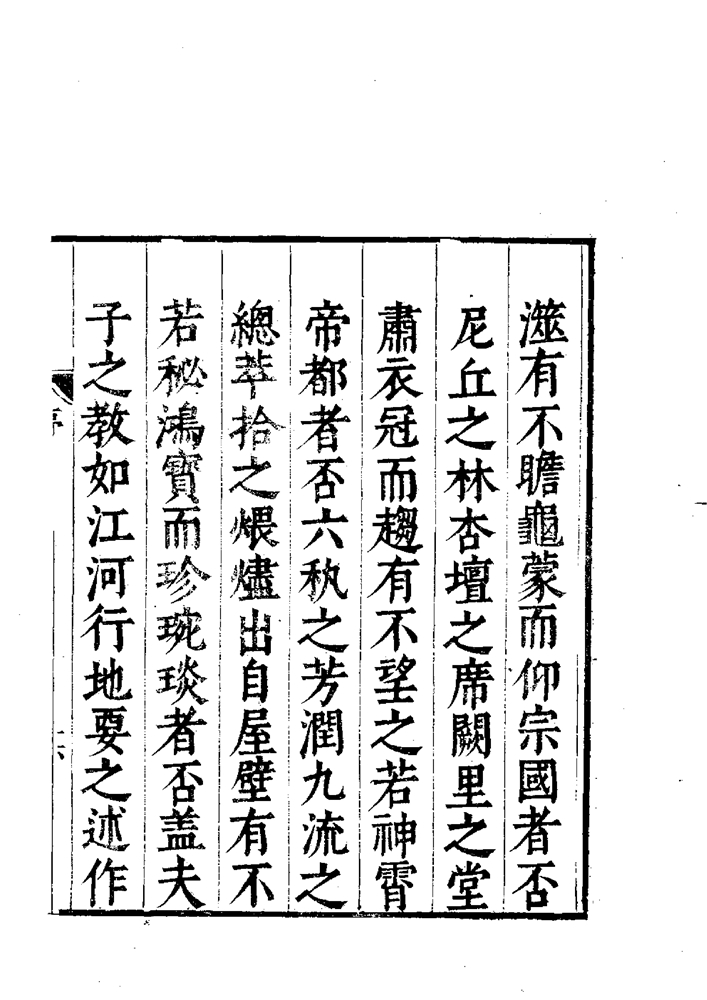 澨有不瞻龜蒙而仰宗國者否
尼丘之林杏壇之席闕里之堂
肅衣冠而趨有不望之若神霄
帝都者否六秇之芳潤九流之
總萃拾之煨燼出自屋壁有不
若秘鴻寶而珍琬琰者否盖夫
子之教如江河行地要之述作
序